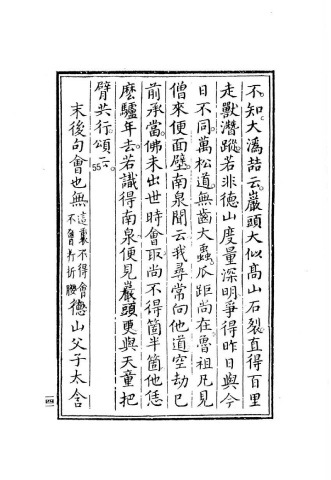 不知大溈喆云巖頭大似髙山石裂直得百里
走獸潛蹤若非德山度量深明爭得昨日與今
日不同萬松道無齒大蟲瓜距尚在魯祖凡見
僧來便面壁南泉聞云我尋常向他道空劫已
前承當佛未出世時會取尚不得箇半箇他恁
麽驢年去若識得南泉便見巖頭更與天童把
臂共行頌云
55
末後句會也無這裏不得會不曾折折腰德山父子太含
四